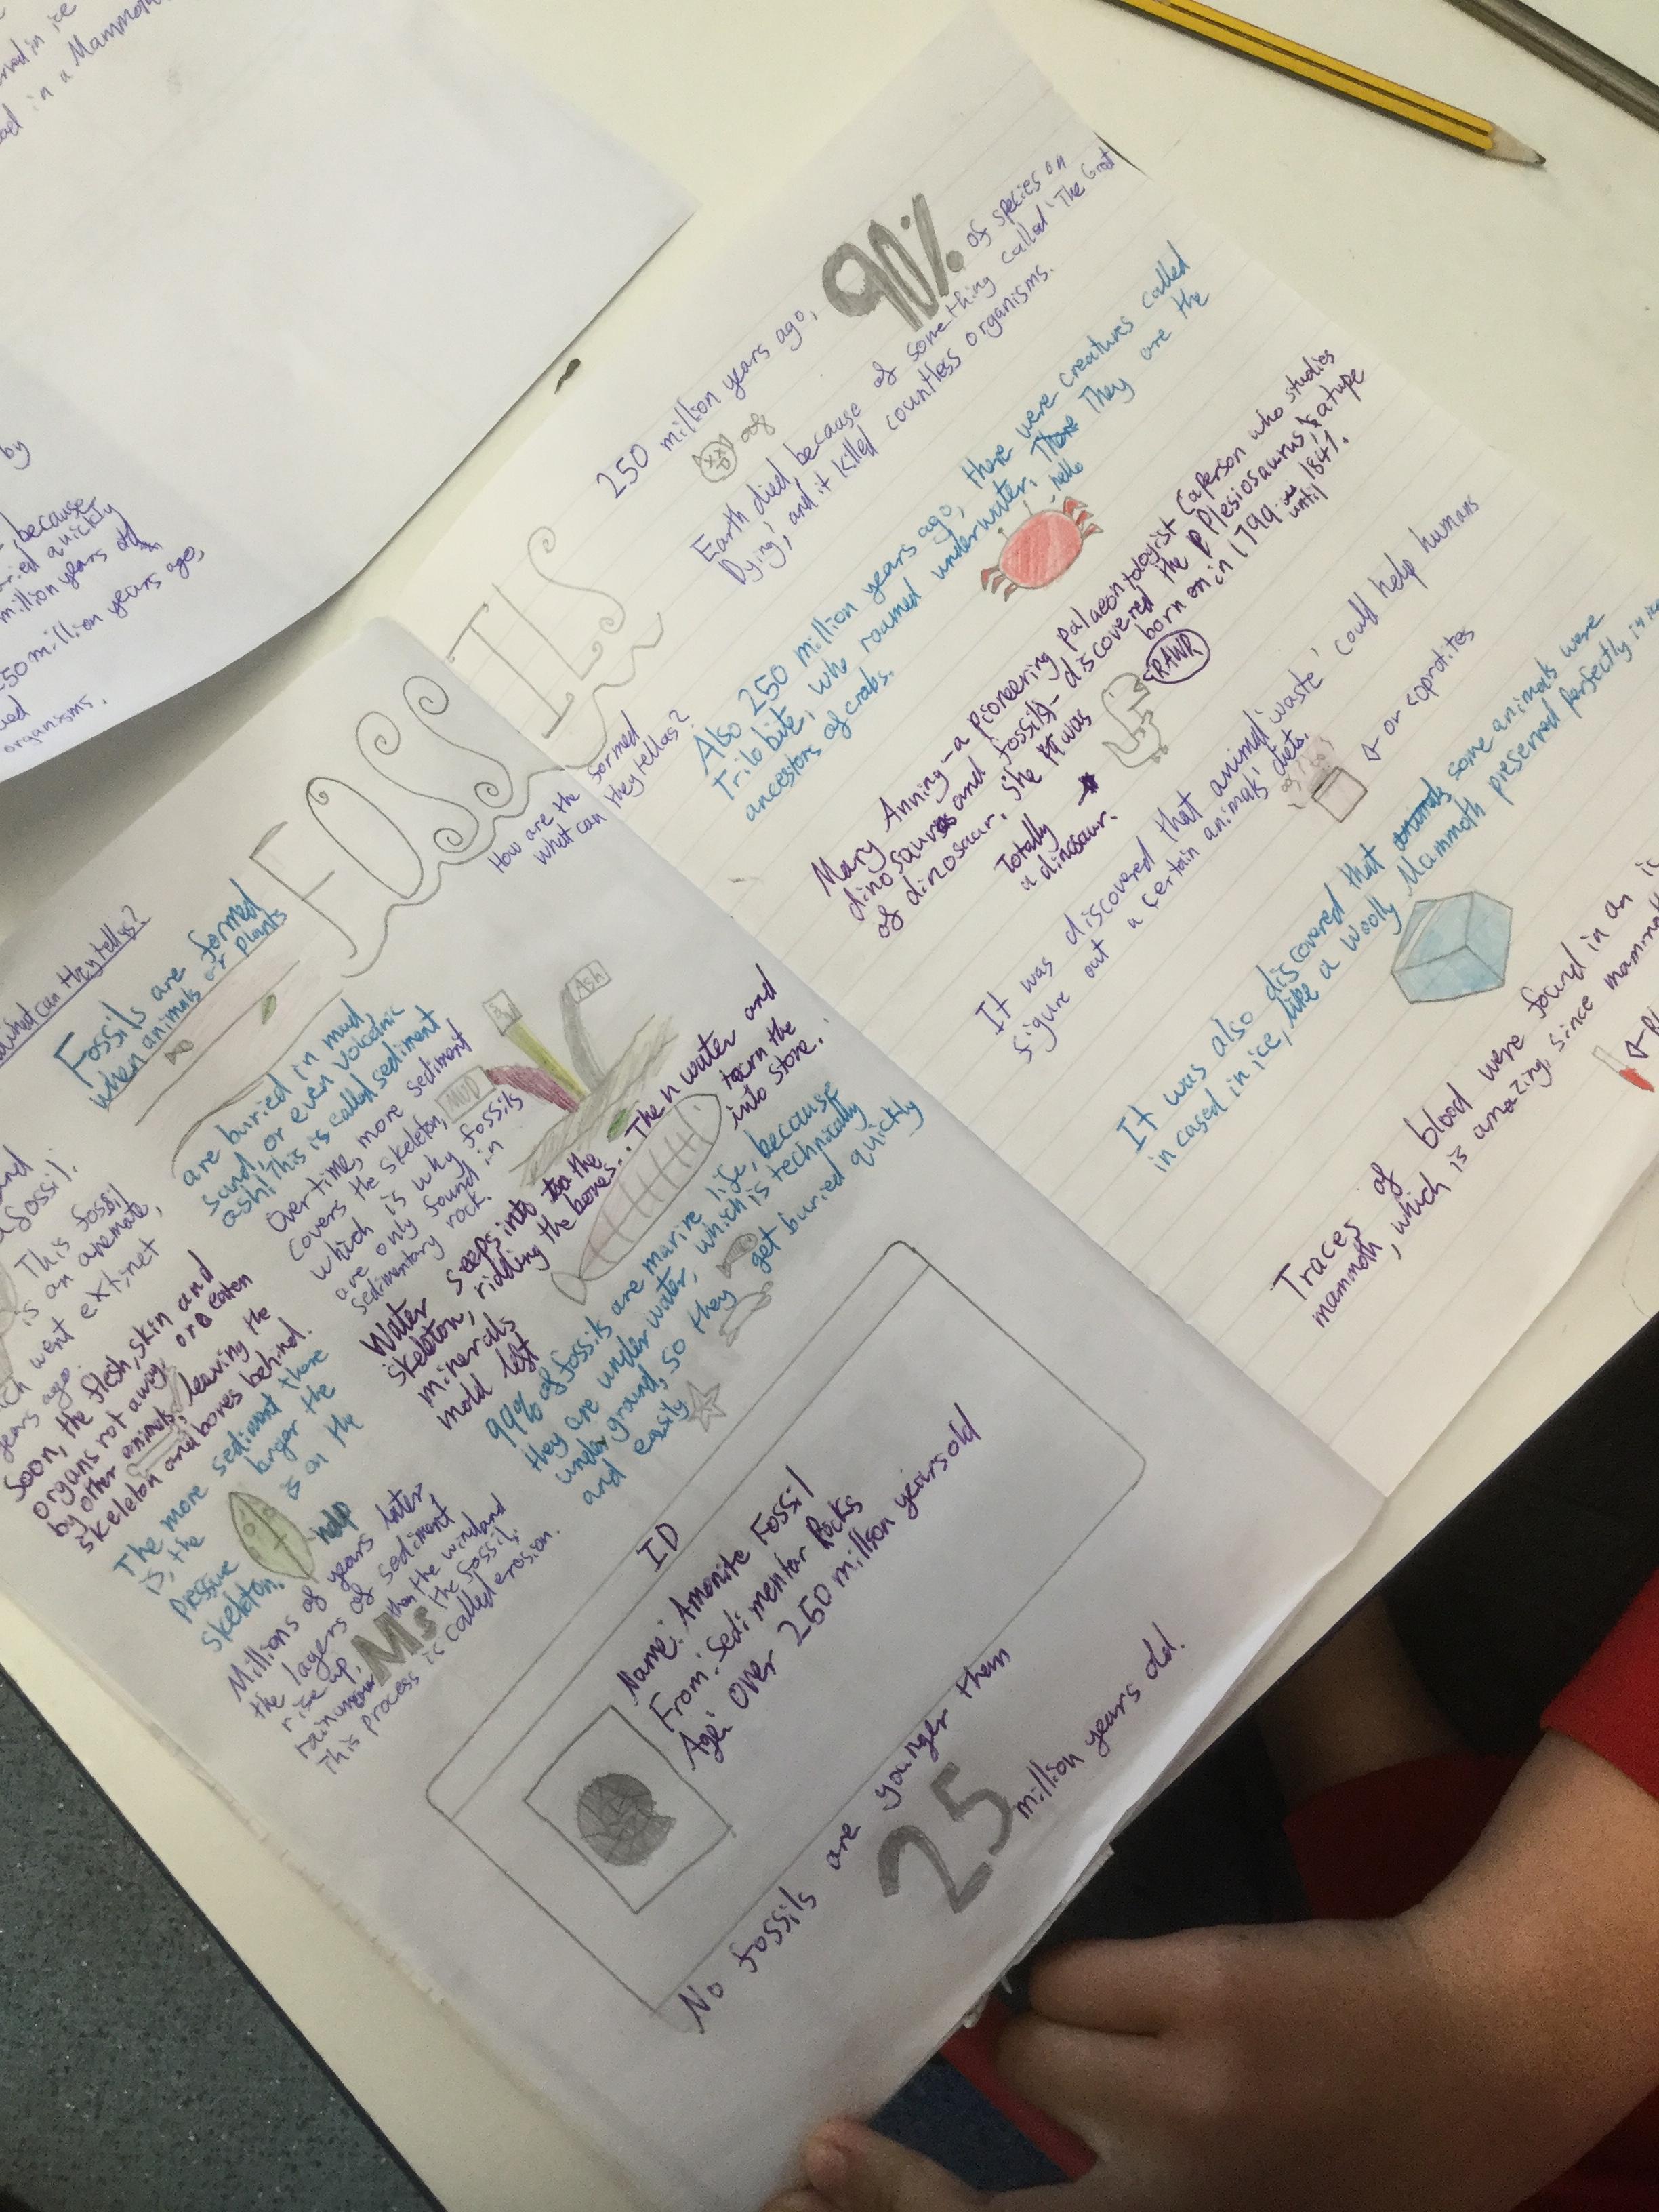 ned in ice
ad in a Mammoth
by
, because
ried quickly
million years old
50 million years ago,
organisms.
FOSSILS
How are the formed
what can they tell as?
what can they tell us?
Fossils are formed
when animals or plants
are buried in mud,
sand, or even volcanic
ash! This is called sediment
Over time, more sediment
covers the skeleton,
which is why fossils
are only found in
sedimentary rock.
MUD
Ash
fossil.
This fossil
is an
went extinct
years ago.
Soon, the flesh, skin and
organs rot away or eaten
by other animals, leaving the
skeleton and bones behind.
The more sediment there
is, the larger the
pressure is on the
skeleton.
help
Water seeps into the
skeleton, ridding the bones...
minerals
mold left
Then water and
turn the
into stone!
99% of fossils are marine life, because
they are under water, which is technically
underground, so they get buried quickly
and easily
Millions of years later
the layers of sediment
rise up, then the wind and
rain the fossil.
This process is called erosion.
Ms
ID
Name: Amonite Fossil
From: Sedimentar Rocks
Age: Over 250 million years old
No fossils are younger then
25 million years old.
250 million years ago, 90% of species on
oof
Earth died because of something called 'The Grat
Dying', and it killed countless organisms.
Also 250 million years ago, there were creatures called
Trilobite, who roamed underwater. There They are the
ancestors of crabs.
hello
Mary Anning - a pioneering palaeontologist (aperson who studies
dinosaurs and fossils - discovered the Plesiosaurus, a type
of dinosaur. She was born on in 1799 until 1847.
Totally
a dinosaur.
RAWR
It was discovered that animal 'waste' could help humans
figure out a certain animals' diets.
or coprotites
It was also discovered that some animals were
incased in ice, like a Woolly Mammoth preserved perfectly in ice
Traces of blood were found in an
mammoth, which is amazing, since